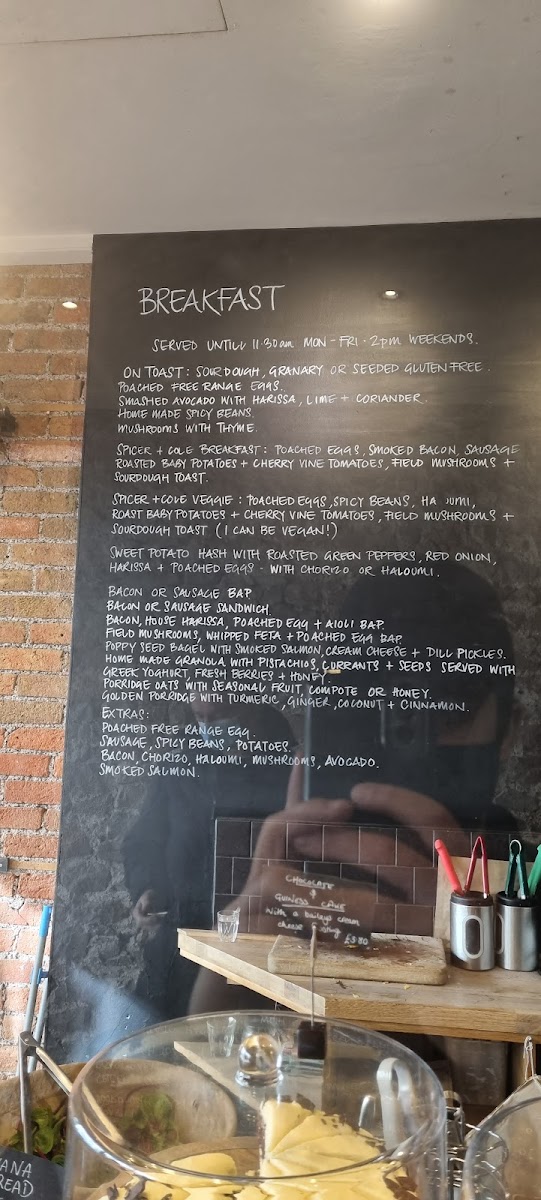 BREAKFAST
SERVED UNTILL 11·30am MON - FRI · 2pm WEEKENDS.
ON TOAST: SOURDOUGH, GRANARY OR SEEDED GLUTEN FREE.
POACHED FREE RANGE EGGS.
SMASHED AVOCADO WITH HARISSA, LIME + CORIANDER.
HOME MADE SPICY BEANS.
MUSHROOMS WITH THYME.
SPICER + COLE BREAKFAST: POACHED EGGS, SMOKED BACON, SAUSAGE
ROASTED BABY POTATOES + CHERRY VINE TOMATOES, FIELD MUSHROOMS +
SOURDOUGH TOAST.
SPICER + COLE VEGGIE: POACHED EGGS, SPICY BEANS, HA OUMI,
ROAST BABY POTATOES + CHERRY VINE TOMATOES, FIELD MUSHROOMS +
SOURDOUGH TOAST (I CAN BE VEGAN!)
SWEET POTATO HASH WITH ROASTED GREEN PEPPERS, RED ONION,
HARISSA + POACHED EGGS - WITH CHORIZO OR HALOUMI.
BACON OR SAUSAGE BAP.
BACON OR SAUSAGE SANDWICH
BACON, HOUSE HARISSA, POACHED EGG + AIOLI BAP.
FIELD MUSHROOMS, WHIPPED FETA + POACHED EGG BAP.
POPPY SEED BAGEL WITH SMOKED SALMON, CREAM CHEESE + DILL PICKLES.
HOME MADE GRANOLA WITH PISTACHIOS, CURRANTS + SEEDS SERVED WITH
GREEK YOGHURT, FRESH BERRIES + HONEY.
PORRIDGE OATS WITH SEASONAL FRUIT, COMPOTE OR HONEY.
GOLDEN PORRIDGE WITH TURMERIC, GINGER, COCONUT + CINNAMON.
EXTRAS:
POACHED FREE RANGE EGG.
SAUSAGE, SPICY BEANS, POTATOES.
BACON, CHORIZO, HALOUMI, MUSHROOMS, AVOCADO.
SMOKED SALMON.
CHOCOLATE
&
GUINESS CAKE
with a baileys cream
cheese
£3.80
ANA
READ